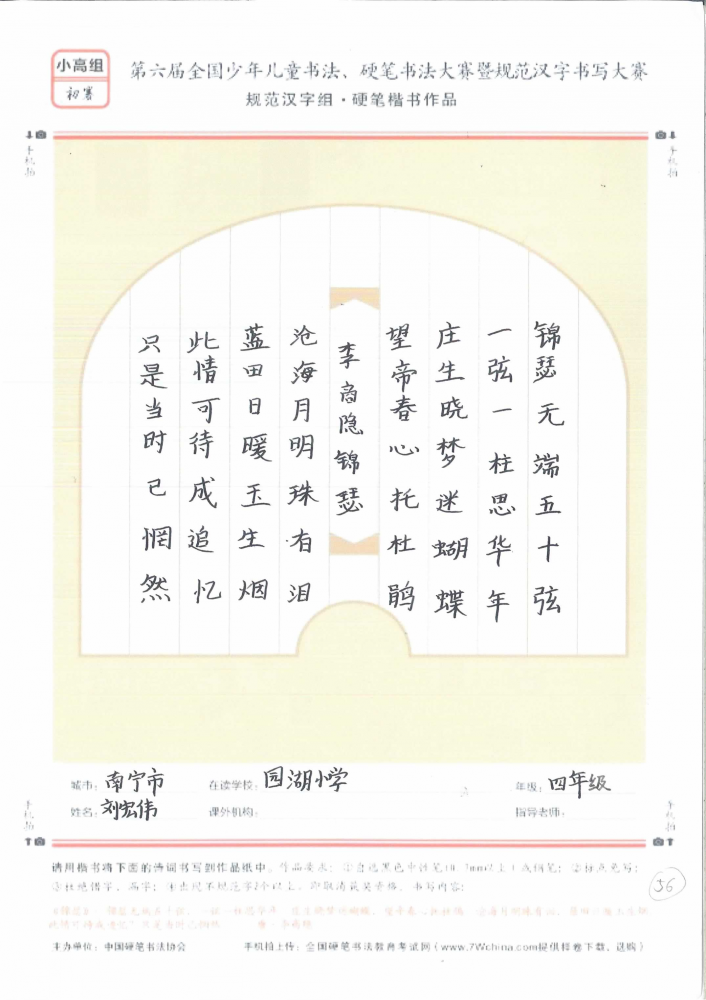 小高组
初赛
第六届全国少年儿童书法、硬笔书法大赛暨规范汉字书写大赛
规范汉字组·硬笔楷书作品
手机拍
手机拍
锦瑟无端五十弦
一弦一柱思华年
庄生晓梦迷蝴蝶
望帝春心托杜鹃
李商隐锦瑟
沧海月明珠有泪
蓝田日暖玉生烟
此情可待成追忆
只是当时已惘然
城市：南宁市 在读学校：园湖小学 年级：四年级
姓名：刘宏伟 课外机构： 指导老师：
手机拍
手机拍
请用楷书将下面的诗词书写到作品纸中。作品要求：①自选黑色中性笔(0.7mm以上)或钢笔；②标点免写；
书写内容：
56
主办单位：中国硬笔书法协会 手机拍上传：全国硬笔书法教育考试网（www.7Wchina.com提供样卷下载、选购）